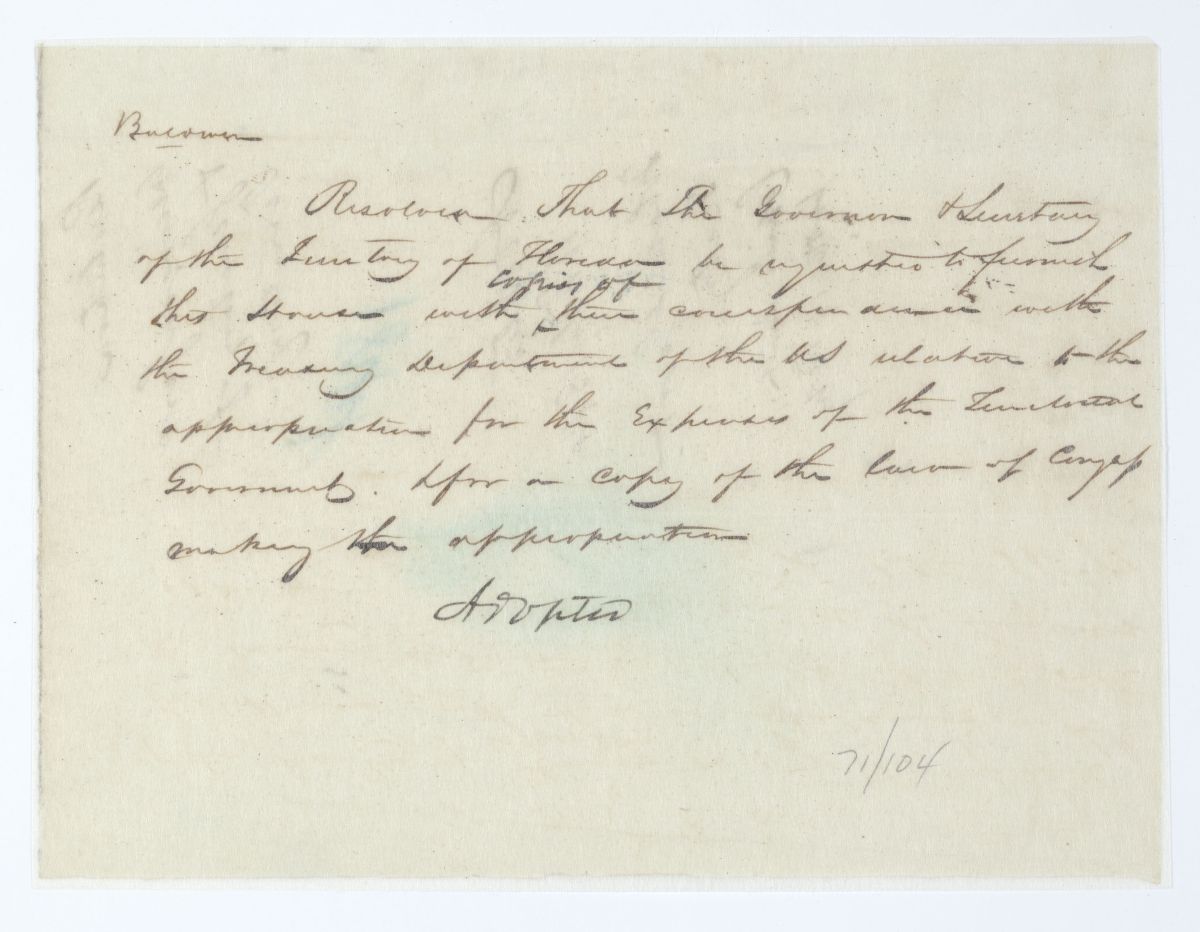 Baldwin
Resolved That The Governor & Secretary
of the Territory of Florida be requested to furnish
copies of
this House with ^ their correspondence with
the Treasury Department of the US relative to the
appropriation for the Expenses of the Territorial
Government. & for a copy of the law of Congress
making the appropriation
Adopted
71/104